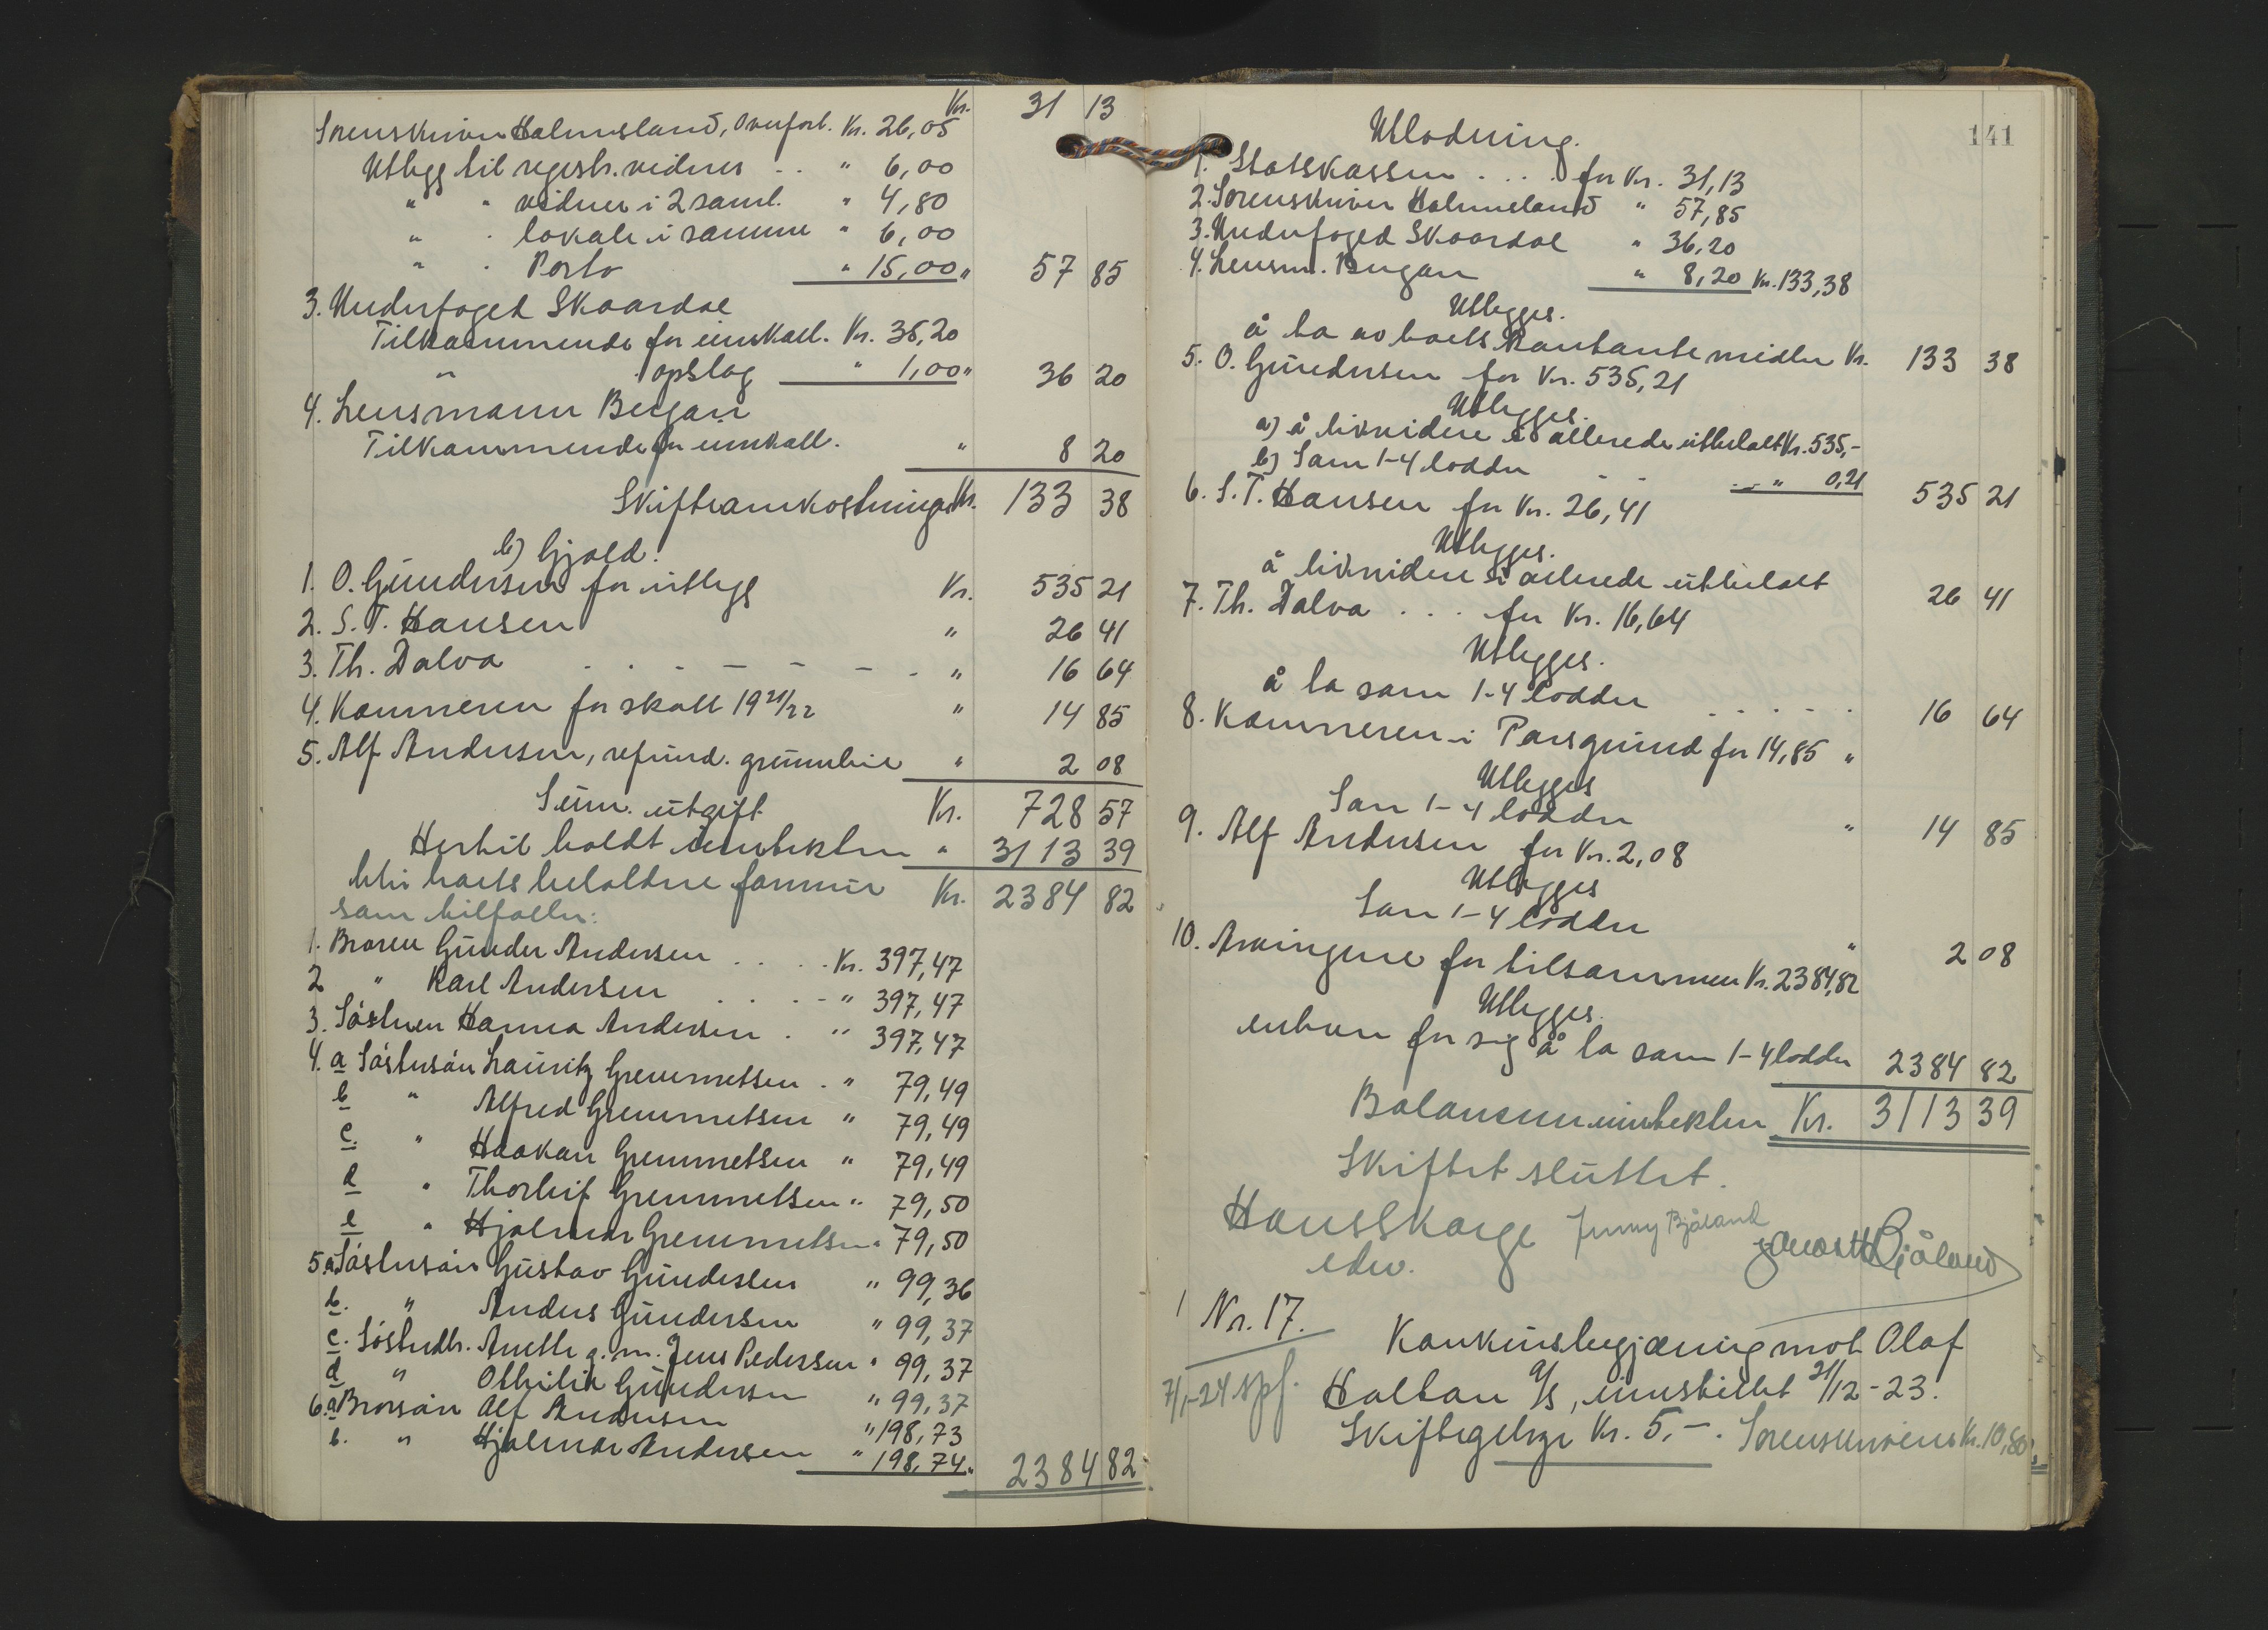 Kr. 31 13
Sorenskriver Halmesland, Overfort. Kr. 26,05
Utlegg til registr.vidner .. " 6,00
" " vidner i 2 saml. " 4,80
" " lokale i samme " 6,00
" " Porto " 15,00 " 57 85
3. Underfoged Skaardal
Tilkommende for innkall. Kr. 35,20
" " opslag " 1,00 " 36 20
4. Lensmann Bugan
Tilkommende for innkall. " 8 20
Skifteomkostninger Kr. 133 38
b) Gjæld.
1. O. Gundersen for utlegg Kr. 535 21
2. S. T. Hansen " 26 41
3. Th. Dalva . . . - - - - " 16 64
4. Kemneren for skatt 19 21/22 " 14 85
5. Alf Andersen, refund. grunnleie " 2 08
Sum utgift Kr. 728 57
Hertil holdt inntekten " 3113 39
blir boets beholdne formue Kr. 2384 82
som tilfaller:
1. Broren Gunder Andersen . . . . Kr. 397,47
2 " Karl Andersen . . . . - " 397,47
3. Søsteren Hanna Andersen . " 397,47
4. a Søstersøn Lauritz Gremmetsen . " 79,49
b " Alfred Gremmetsen " 79,49
c. " Haakon Gremmetsen " 79,49
d " Thorleif Gremmetsen " 79,50
e " Hjalmar Gremmetsen " 79,50
5.a Søstersøn Gustav Gundersen " 99,36
b. " Anders Gundersen " 99,37
c. Søsterdtr. Anette g. m. Jens Pedersen " 99,37
d " Othilie Gundersen " 99,37
6.a Brorsøn Alf Andersen " 198,73
b. " Hjalmar Andersen " 198,74 " 2384 82
141
Utlodning.
1. Statskassen . . . . for Kr. 31,13
2. Sorenskriver Halmesland " 57,85
3. Underfoged Skaardal " 36,20
4. Lensm. Bugan " 8,20 Kr. 133,38
Utlegges.
å ta av boets kontante midler Kr. 133 38
5. O. Gundersen for Kr. 535,21
Utlegges.
a) å likvidere i allerede utbetalt Kr. 535,-
b) Som 1-4 lodder - - .. " 0,21 535 21
6. S. T. Hansen for Kr. 26,41
Utlegges.
å likvidere i allerede utbetalt 26 41
7. Th. Dalva . . . for Kr. 16,64
Utlegges.
å ta som 1-4 lodder . . . . . 16 64
8. Kemneren i Porsgrund for 14,85 "
Utlegges
Som 1-4 lodder " 14 85
9. Alf Andersen for Kr. 2,08
Utlegges
Som 1-4 lodder " 2 08
10. Arvingene for tilsammen Kr. 2384,82
Utlegges.
enhver for sig å ta som 1-4 lodder 2384 82
Balanserer inntekten Kr. 3113 39
Skiftet sluttet.
Hans Skarge Jenny Bjåland Bjåland
edv.
1 Nr. 17. Konkursbegjæring mot Olaf
7/1-24 spf. Holtan A/S, innstillet 21/12-23.
Skiftegebyr Kr. 5,-. Sorenskriveren Kr. 10,80.